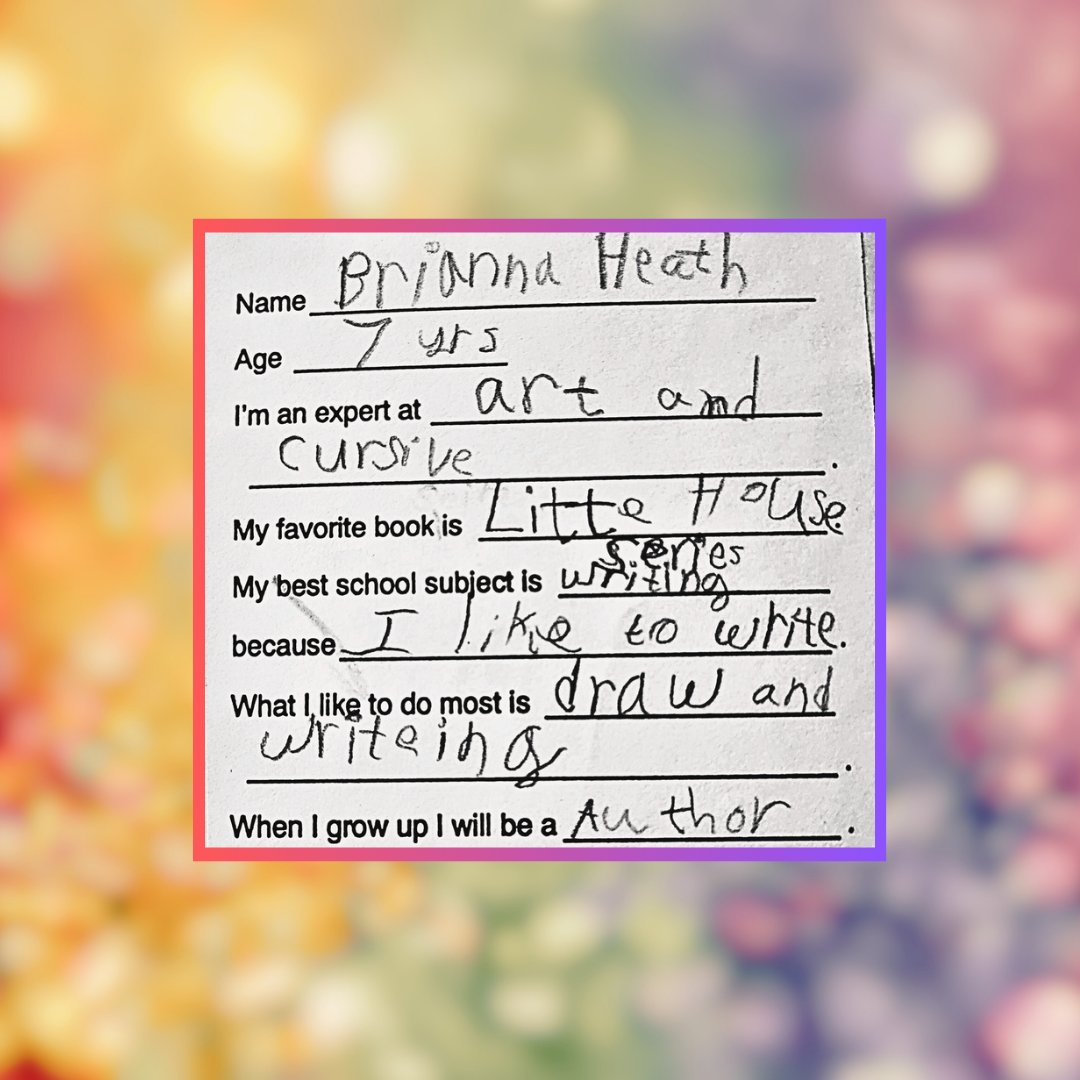 Name Brianna Heath
Age 7 yrs
I'm an expert at art and
cursive.
My favorite book is Litte House
series
My best school subject is writing
because I like to write.
What I like to do most is draw and
writeing.
When I grow up I will be a Author.